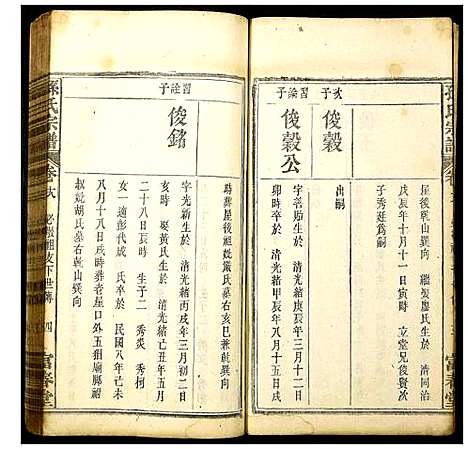 孫氏宗譜
星後乾山巽向　繼娶廖氏生於　清同治
戊辰年十月十一日寅時　立堂兄俊賢次
子秀廷爲嗣
亥子
俊穀
出嗣
習論子
俊穀公
字善貽生於　清光緒庚辰年三月十二日
卯時卒於　清光緒甲辰年八月十五日戌
時葬屋後祖妣嚴氏墓右亥巳兼乾巽向
習詮子
俊銘
字光新生於　清光緒丙戌年三月初二日
時　娶黃氏生於　清光緒己丑年五月
二十八日辰時　生子二　秀炎　秀柯
女一適彭代成　氏卒於　民國八年己未
八月十八日戌時葬老星口外五狙廟腳祖
叔妣胡氏墓右乾山巽向
孫氏宗譜
卷
必振湘支下世傳
四
富春堂
富春堂